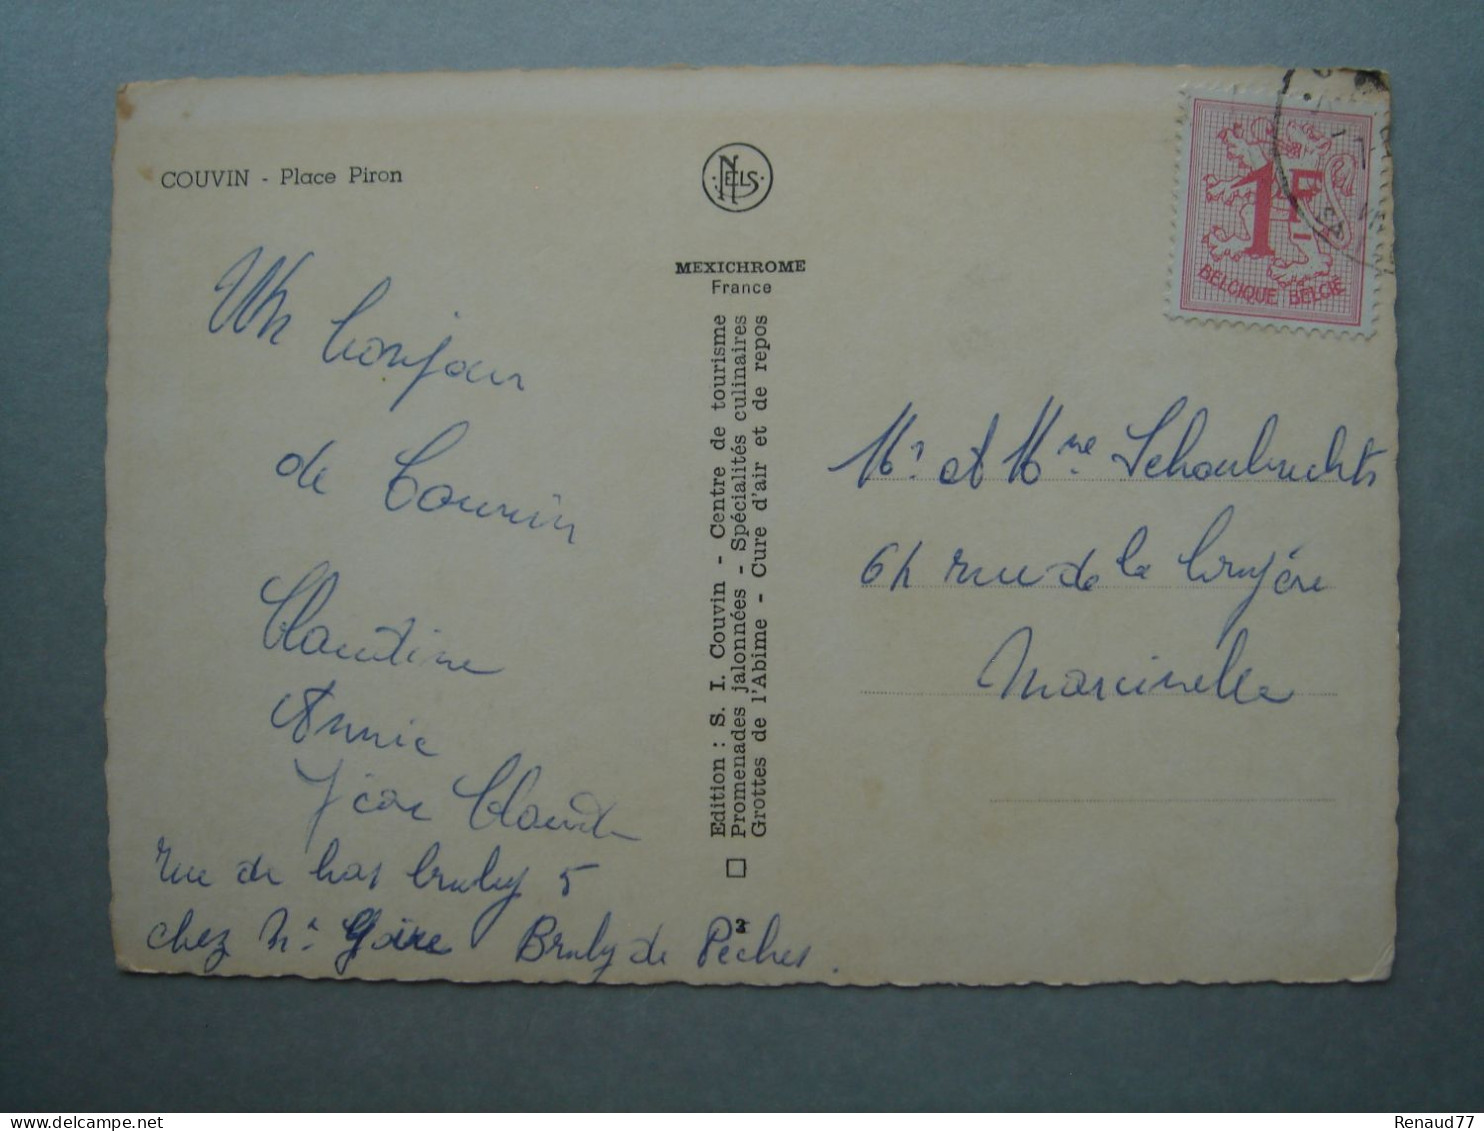 COUVIN - Place Piron
NELS
MEXICHROME
France
Edition : S. I. Couvin - Centre de tourisme
Promenades jalonnées - Spécialités culinaires
Grottes de l'Abime - Cure d'air et de repos
3
1F
BELGIQUE BELGIË
Un bonjour
de Couvin
Claudine
Annie
Jean Claude
rue de bas bruly 5
chez Mr Goire Bruly de Pêches.
Mr et Mme Schoubrechts
64 rue de la bruyère
Marcinelle
Renaud77